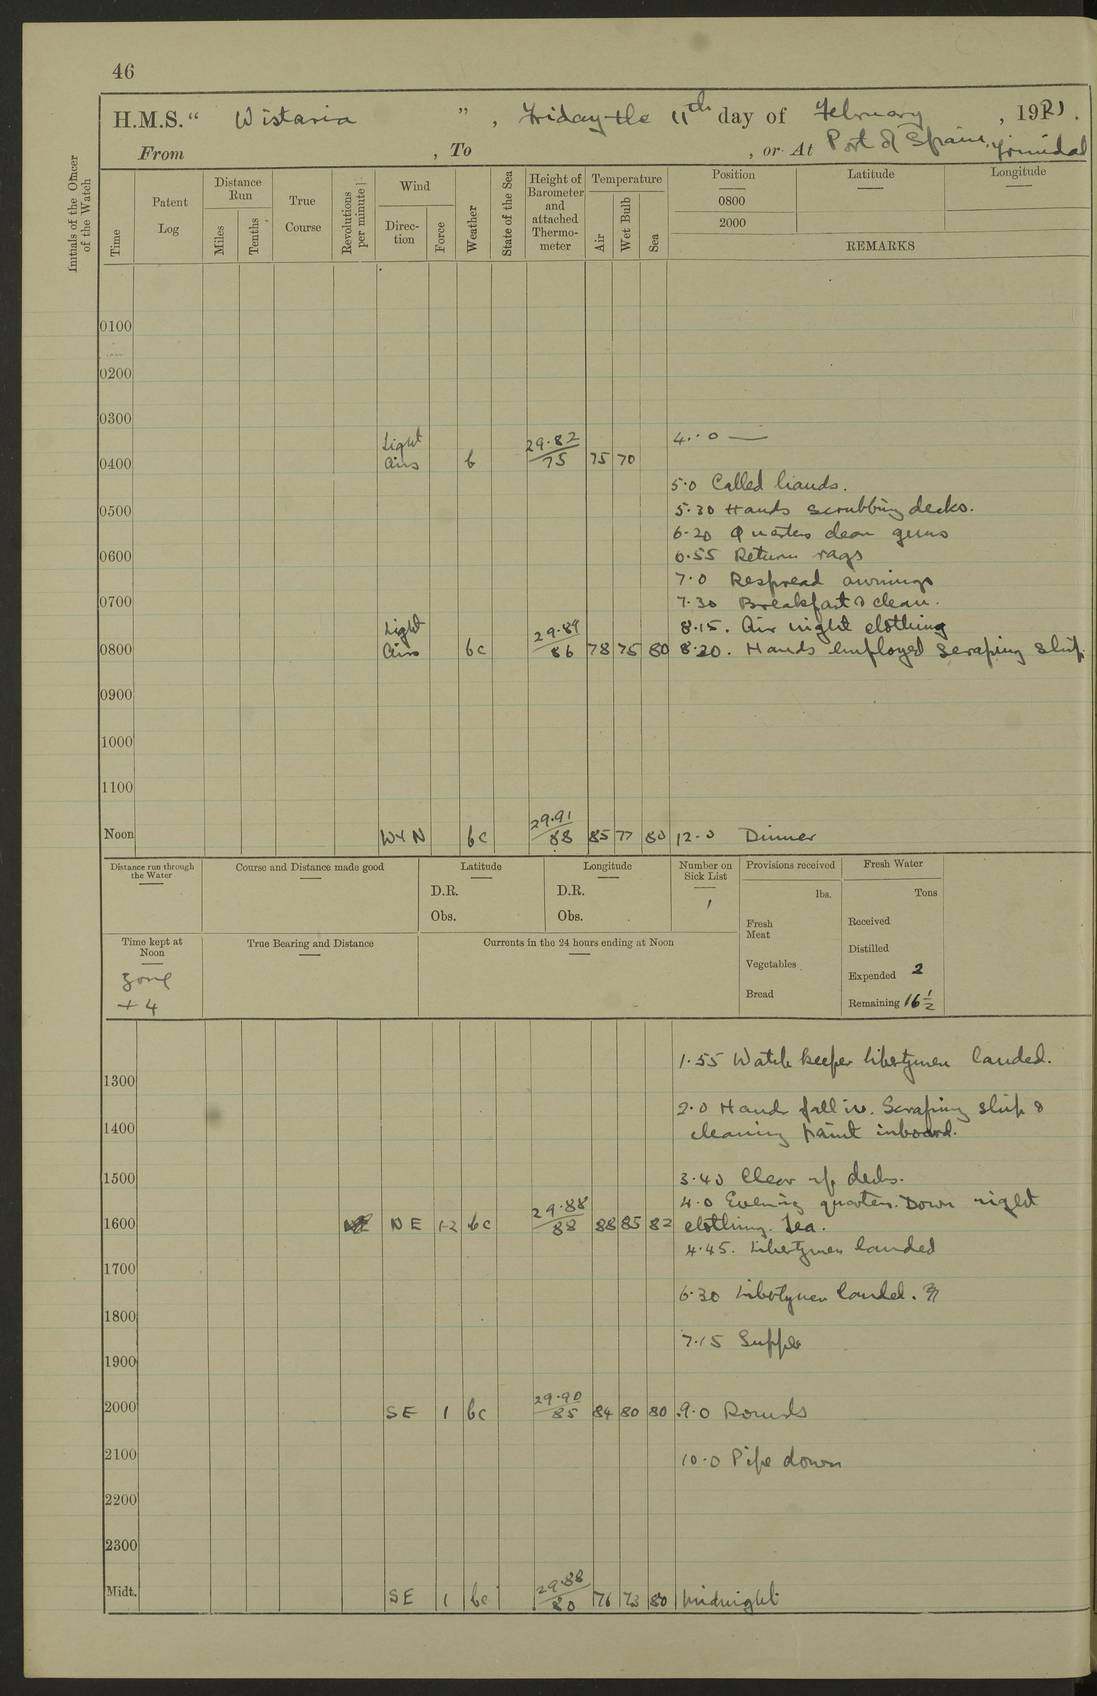 46
H.M.S. “ Wistaria ” , Friday the 11th day of February , 1921.
From , To , or At Port of Spain, Trinidad
Initials of the Officer of the Watch
Time
Patent Log
Distance Run
Miles
Tenths
True Course
Revolutions per minute
Wind
Direc-tion
Force
Weather
State of the Sea
Height of Barometer and attached Thermo-meter
Temperature
Air
Wet Bulb
Sea
Position
0800
2000
Latitude
Longitude
REMARKS
0100
0200
0300
0400 Light airs b 29.82/75 75 70 4.0 —
5.0 Called hands.
0500 5.30 Hands scrubbing decks.
6.20 Quarters clean guns
0600 6.55 Return rags
7.0 Respread awnings
0700 7.30 Breakfast & clean.
8.15. Air night clothing
0800 Light airs bc 29.89/86 78 75 80 8.20. Hands employed scraping ship.
0900
1000
1100
Noon WxN bc 29.91/88 85 77 80 12.0 Dinner
Distance run through the Water
Course and Distance made good
Latitude
D.R.
Obs.
Longitude
D.R.
Obs.
Number on Sick List
1
Provisions received
lbs.
Fresh Meat
Vegetables
Bread
Fresh Water
Tons
Received
Distilled
Expended 2
Remaining 16 1/2
Time kept at Noon
Zone
+ 4
True Bearing and Distance
Currents in the 24 hours ending at Noon
1.55 Watch keeper libertymen landed.
1300
2.0 Hands fall in. Scraping ship &
1400 cleaning paint inboard.
1500 3.40 Clear up decks.
4.0 Evening quarters. Down night
1600 NE 1-2 bc 29.88/88 88 85 82 clothing. Tea.
4.45. Libertymen landed
1700
6.30 Libertymen landed.
1800
7.15 Supper
1900
2000 SE 1 bc 29.90/85 84 80 80 9.0 Rounds
2100 10.0 Pipe down
2200
2300
Midt. SE 1 bc 29.88/80 76 73 80 Midnight